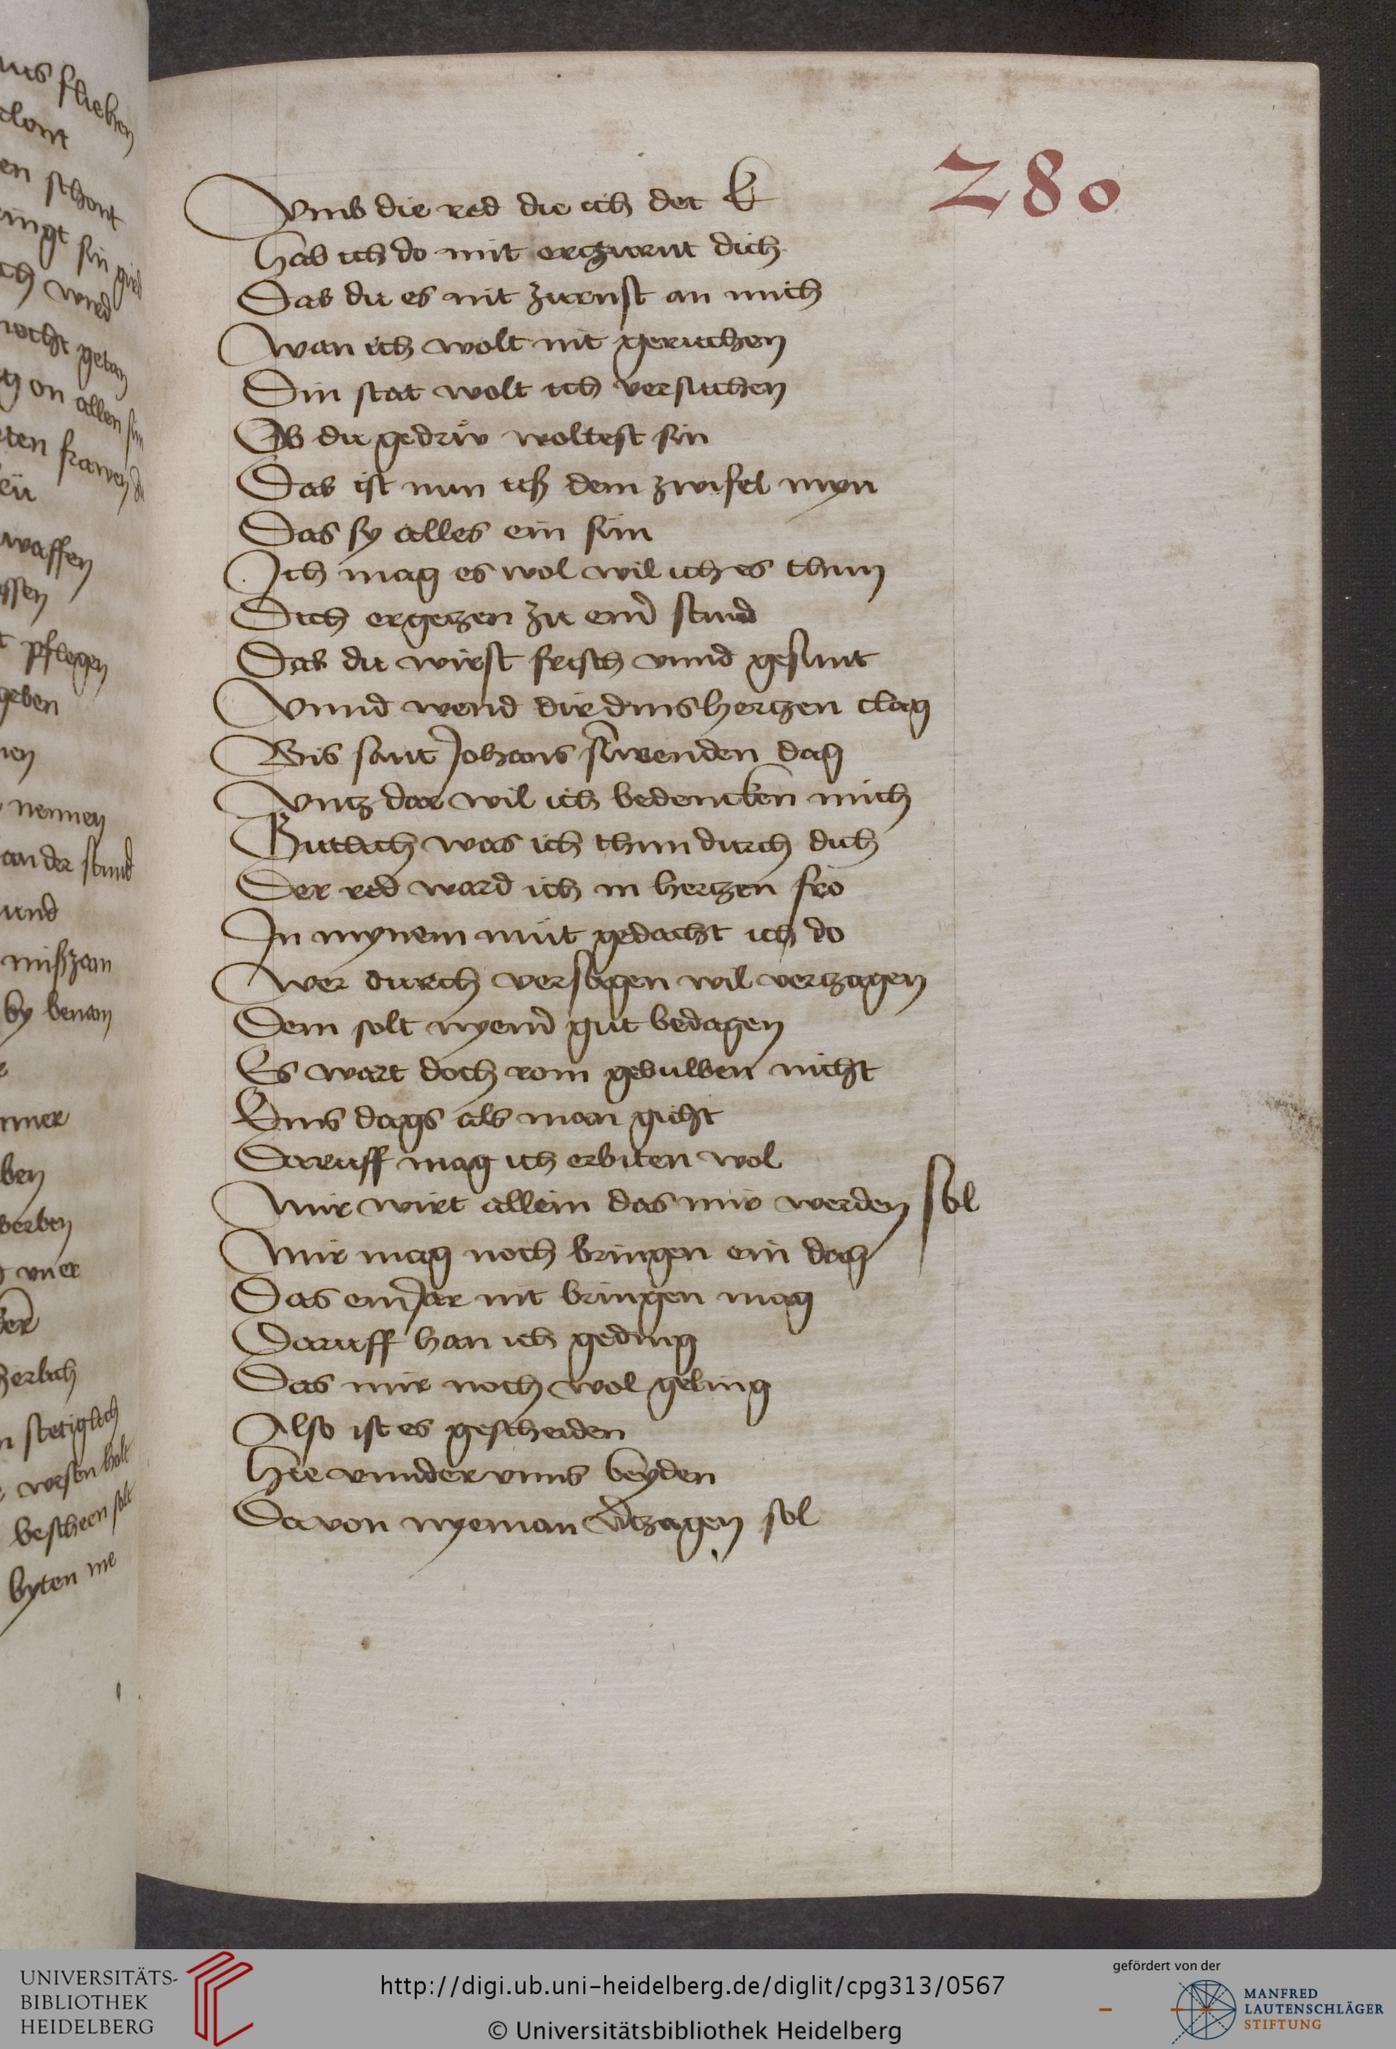 280
Vmb die red die ich det
Hab ich do mit erzurnt dich
Das du es nit zurnst an mich
Wan ich wolt nit geruchen
Din stat wolt ich versuchen
Ob du gedrüv woltest sin
Das ist nun uß dem zwifel myn
Das sy alles ein sün
Ich mag es wol wil ich es thun
Dich ergetzen zu einer stund
Das du wirst frisch vnnd gesunt
Vnnd wend dir dins hertzen clag
Bis sant Johans sunwenden dag
Vntz dar wil ich bedencken mich
Gutlich was ich thun durch dich
Der red ward ich in hertzen fro
In mynem müt gedacht ich do
Wer durch versagen wil vertzagen
Dem solt nyemer gut bedagen
Es wart doch rom gebulben nicht
Eins dags als man gicht
Daruff mag ich erbiten wol
Mir wirt allein das mir werden sol
Mir mag noch bringen ein dag
Das ein Jar nit bringen mag
Daruff han ich geding
Das mir noch wol geling
Also ist es gescheiden
Hie vnnder vnns beyden
Da von nyeman vertzagen sol
us fliehen
clont
en schont
ringt sin
ich wurd
nocht getan
on allen
ten frawen
waffen
ssen
pflegen
geben
nen
nennen
an der stund
und
mißzam
by benam
mer
ben
werben
vner
stetiglich
wesen holt
bescheen solt
byten me
UNIVERSITÄTS-
BIBLIOTHEK
HEIDELBERG
http://digi.ub.uni-heidelberg.de/diglit/cpg313/0567
© Universitätsbibliothek Heidelberg
gefördert von der
MANFRED
LAUTENSCHLÄGER
STIFTUNG